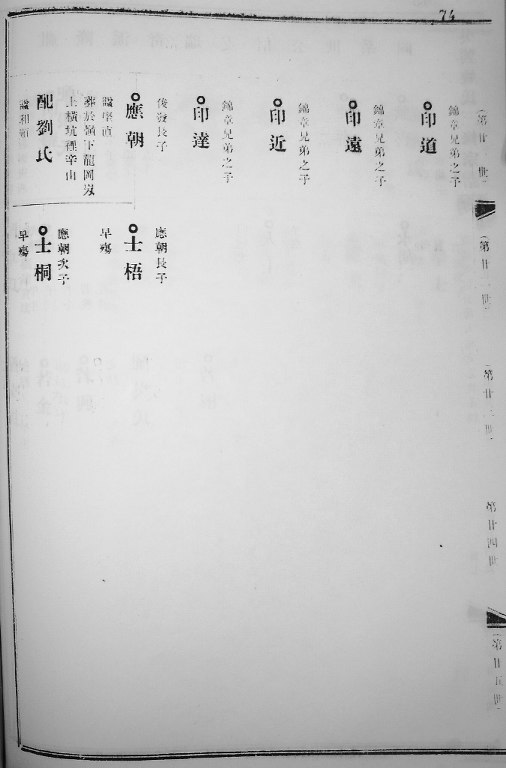 74
第廿世
錦章兄弟之子
印道
錦章兄弟之子
印遠
錦章兄弟之子
印近
錦章兄弟之子
印達
俊發長子
應朝
諡摩直
葬於嶺下龍岡嶺
上橫坑裡辛山
配劉氏
第廿世
應朝長子
士梧
早殤
應朝次子
士桐
早殤
第廿三世
第廿四世
第廿五世